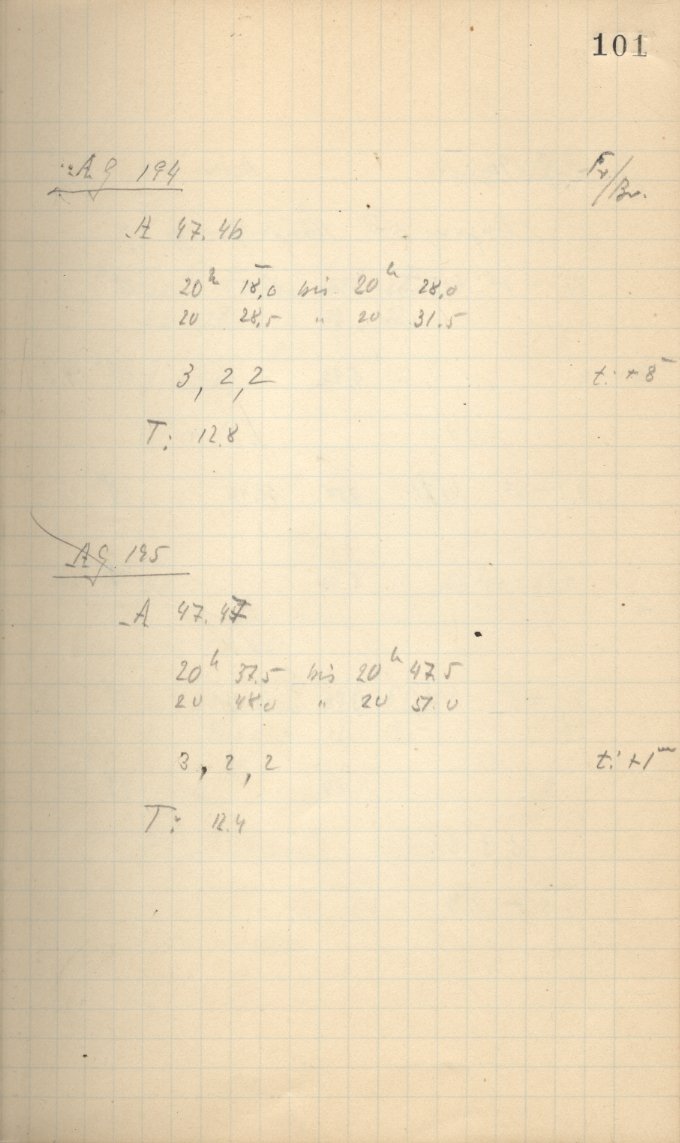 101
AG 194 Fr/Br.
A 47.46
20h 18,0 bis 20h 28,0
20 28,5 " 20 31.5
3, 2, 2 t: + 8m
T: 12.8
AG 195
A 47.47
20h 37.5 bis 20h 47.5
20 48.0 " 20 51.0
3, 2, 2 t: +1m
T: 12.4